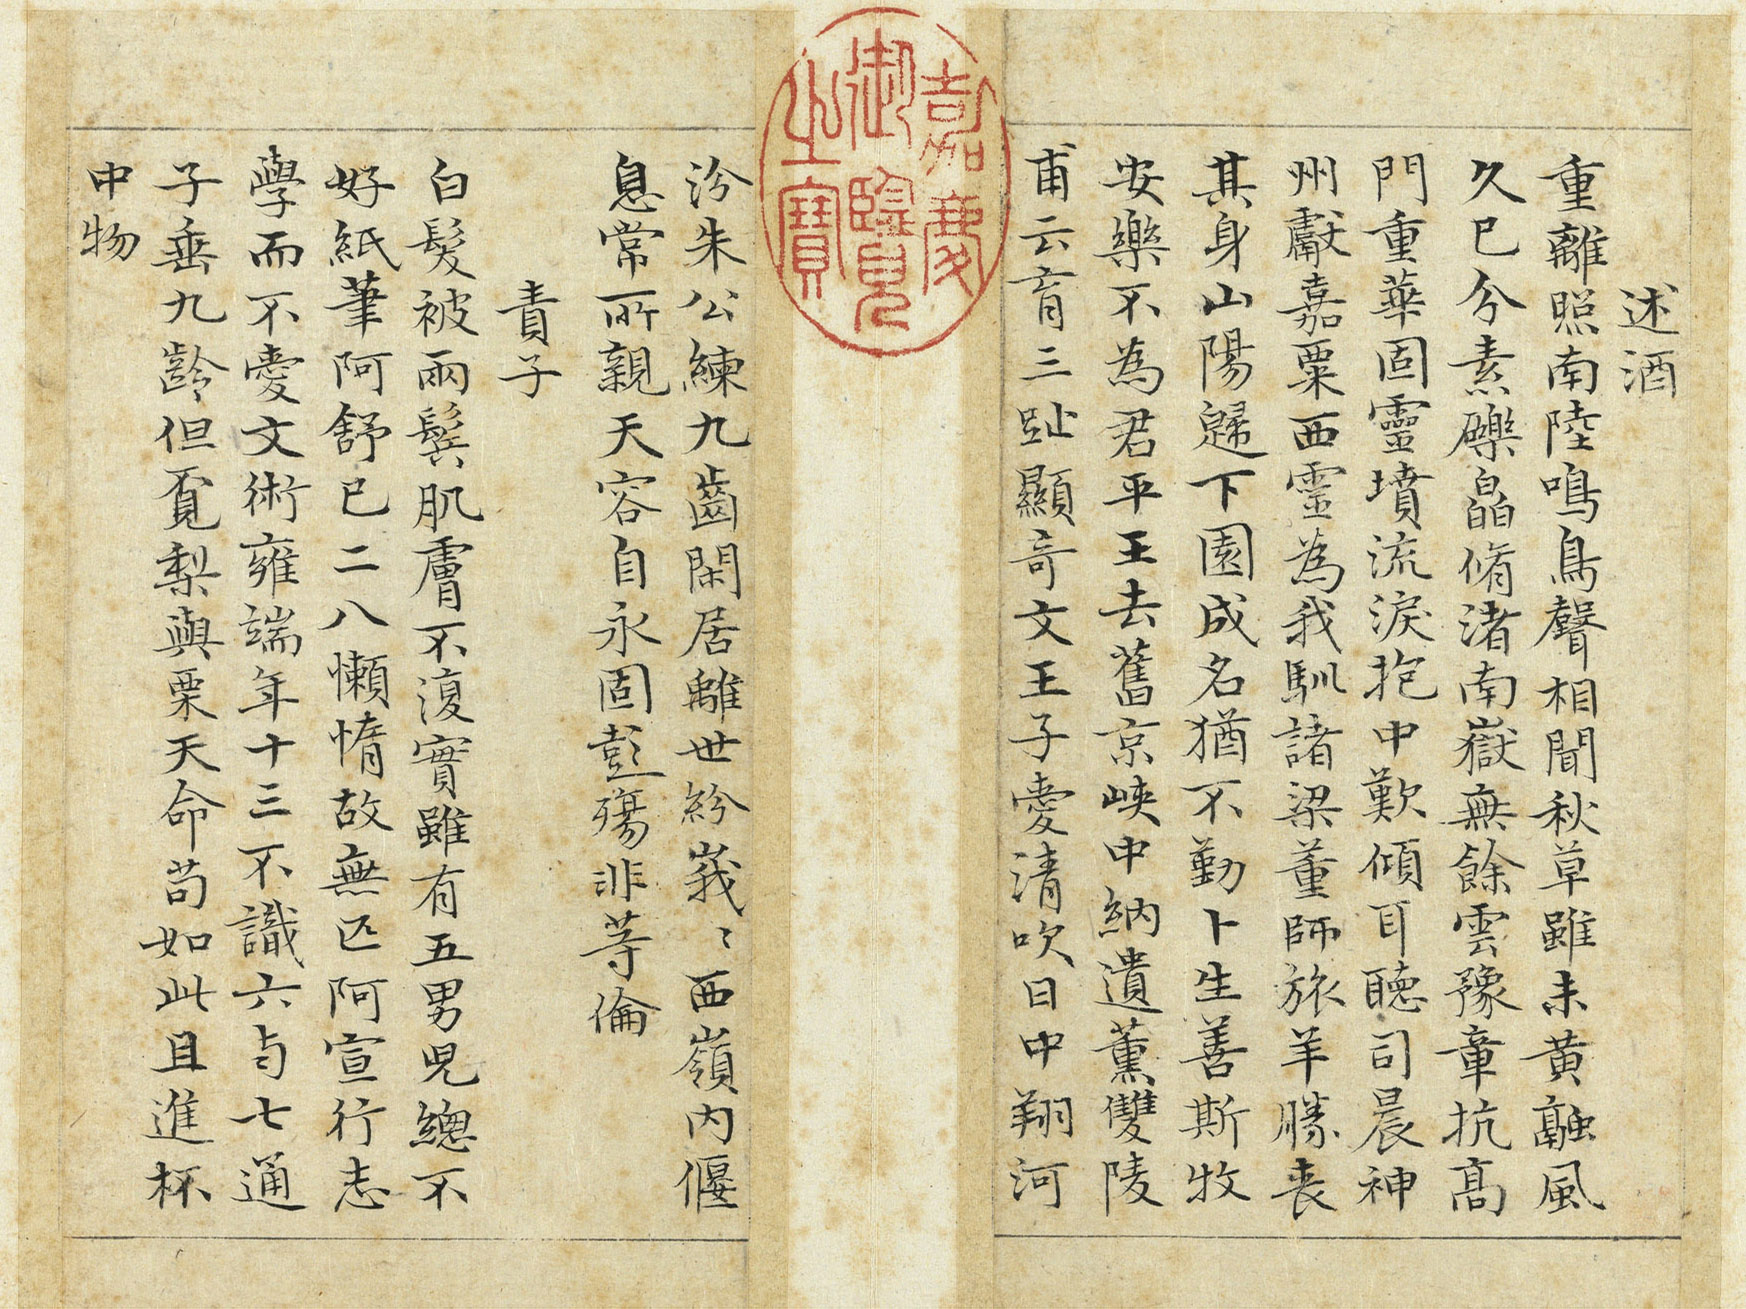 述酒
重離照南陸鳴鳥聲相聞秋草雖未黃融風
久已分素礫皛脩渚南嶽無餘雲豫章抗高
門重華固靈墳流淚抱中歎傾耳聽司晨神
州獻嘉粟西靈為我馴諸梁董師旅羊勝喪
其身山陽歸下園成名猶不勤卜生善斯牧
安樂不為君平王去舊京峽中納遺薰雙陵
甫云育三趾顯奇文王子愛清吹日中翔河
汾朱公練九齒閑居離世紛峩〻西嶺內偃
息常所親天容自永固彭殤非等倫
責子
白髮被兩鬢肌膚不復實雖有五男兒總不
好紙筆阿舒已二八懶惰故無匹阿宣行志
學而不愛文術雍端年十三不識六与七通
子垂九齡但覓梨與栗天命苟如此且進杯
中物
嘉慶御覽之寶